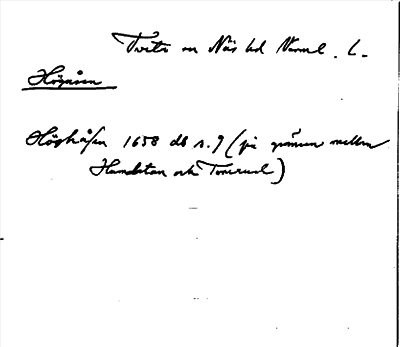 Tveta sn Näs hd Värml. l.
Högåsen
Höghåsen 1658 db s. 9 (på gränsen mellan
Hamletan och Tonerud)